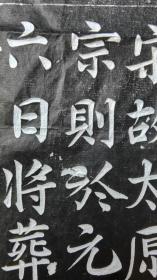 宋故太原
宗則於元
六日將葬